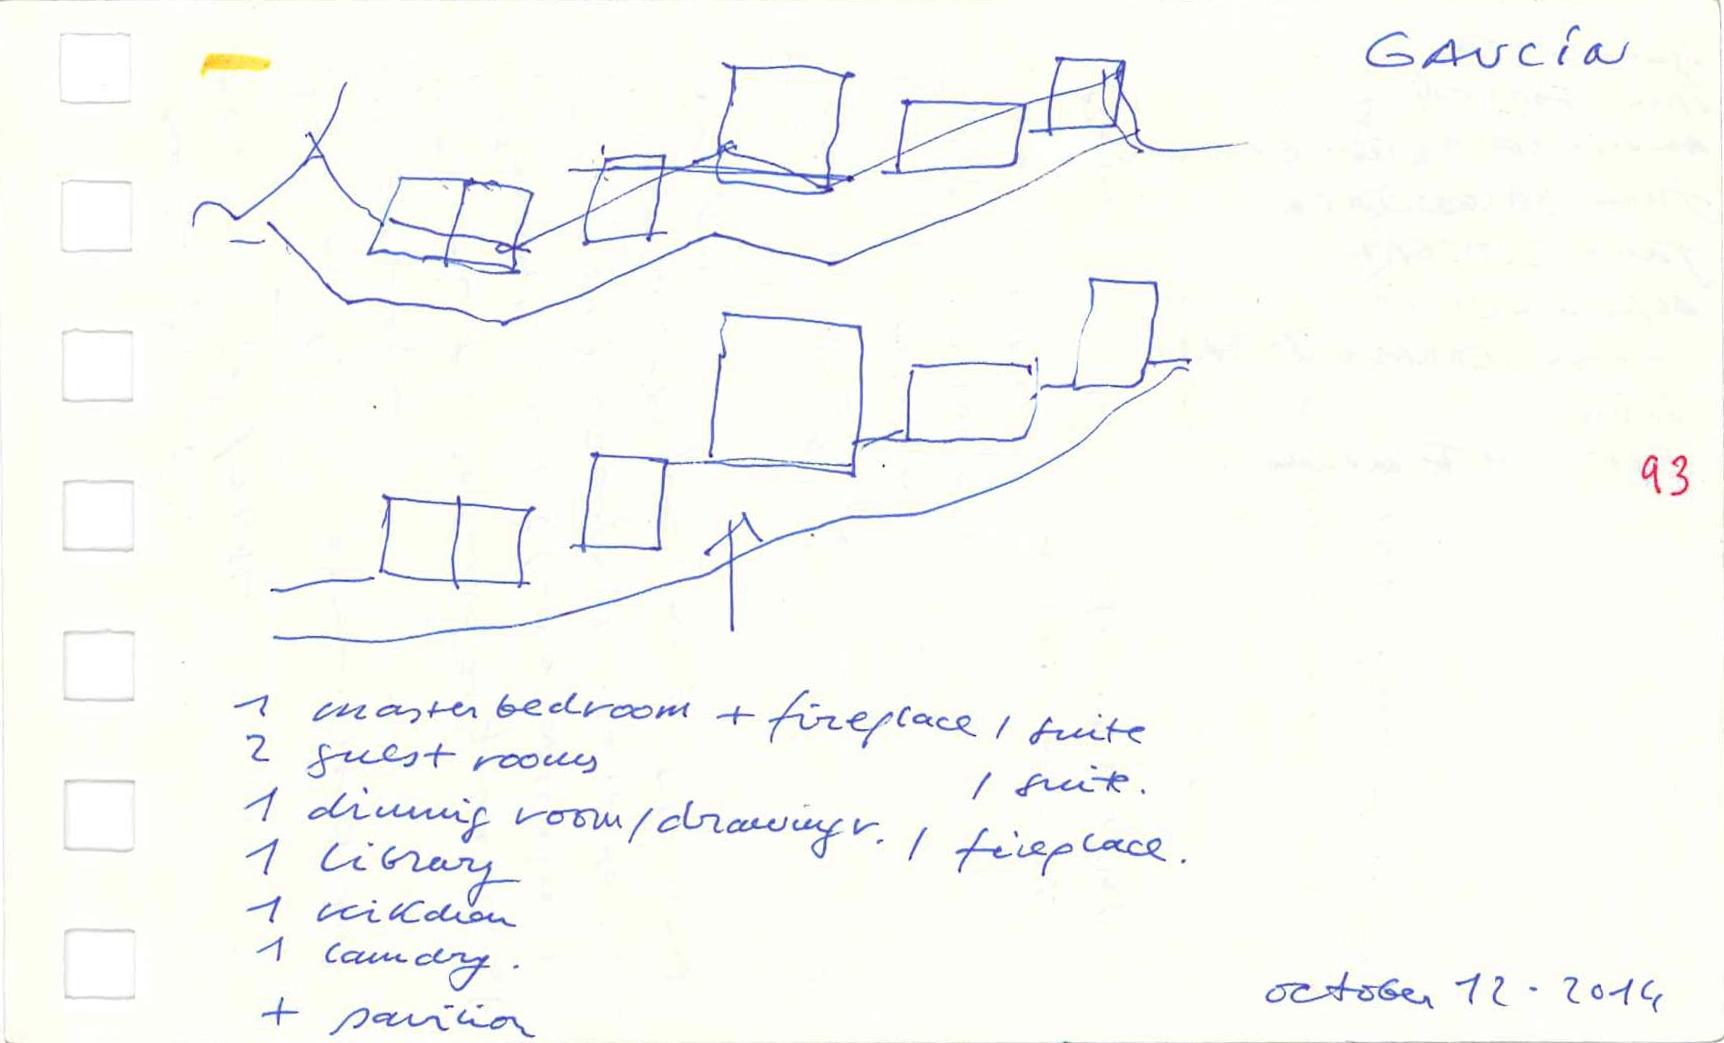 GAUCÍN
93
1 master bedroom + fireplace / suite
2 guest rooms / suite.
1 dinning room/drawing r. / fireplace.
1 library
1 kikchen
1 laundry.
+ pavilion
october 12 - 2014